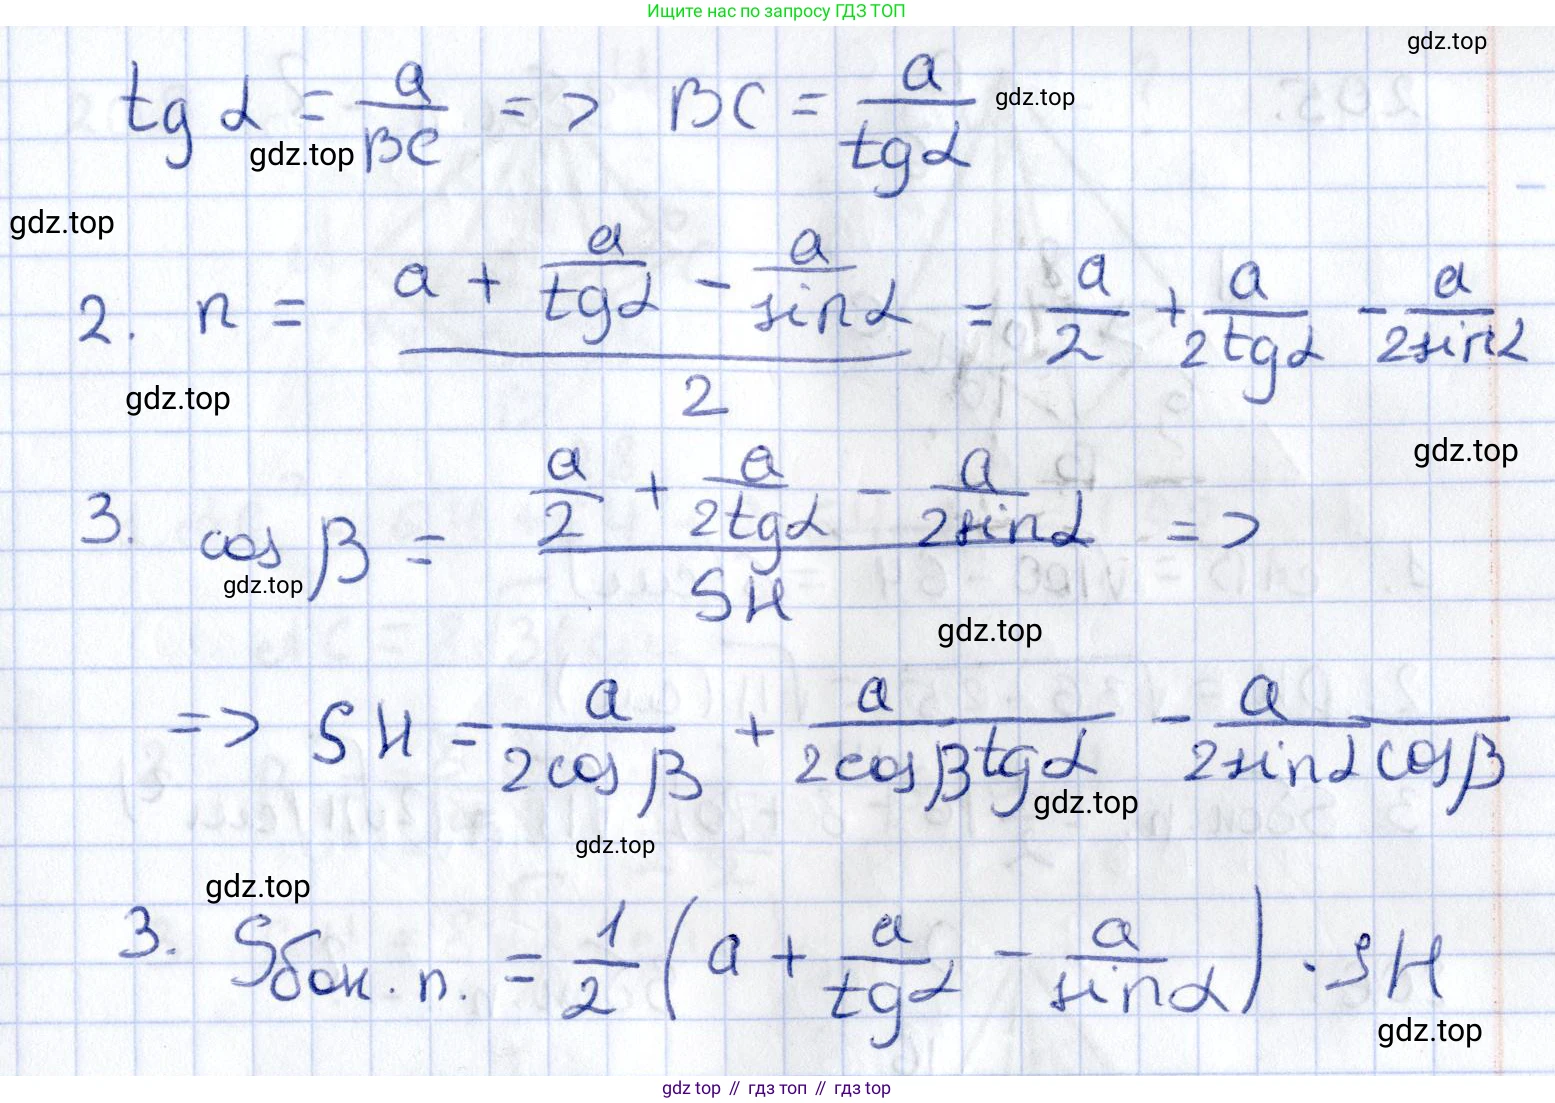 Ищите нас по запросу ГДЗ ТОП
gdz.top
tg α = a/BC => BC = a/tg α
gdz.top
gdz.top
gdz.top
2. r = (a + a/tg α - a/sin α)/2 = a/2 + a/2tg α - a/2sin α
gdz.top
gdz.top
3. cos β = (a/2 + a/2tg α - a/2sin α)/SH =>
gdz.top
gdz.top
=> SH = a/2cos β + a/2cos β tg α - a/2sin α cos β
gdz.top
gdz.top
gdz.top
3. Sбок.п. = 1/2 (a + a/tg α - a/sin α) · SH
gdz.top
gdz top // гдз топ // gdz top